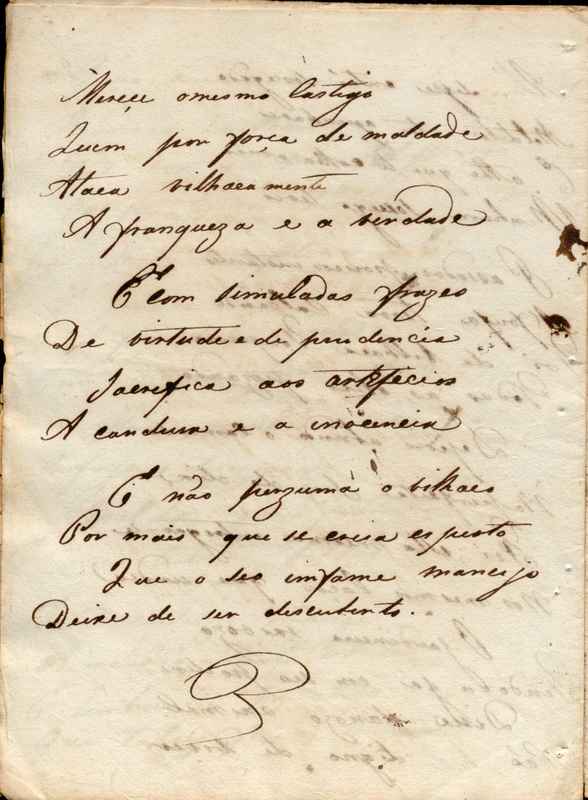 Merece omesmo Castigo
Quem por força de maldade
Ataca vilhacamente
A franqueza e a verdade
E com simuladas frazes
De virtude e de prudencia
Sacrefica aos artefecios
A candura e a inocencia
E não prezuma o vilhaco
Por mais que se creia esperto
Que o seo imfame manejo
Deixe de ser descuberto.